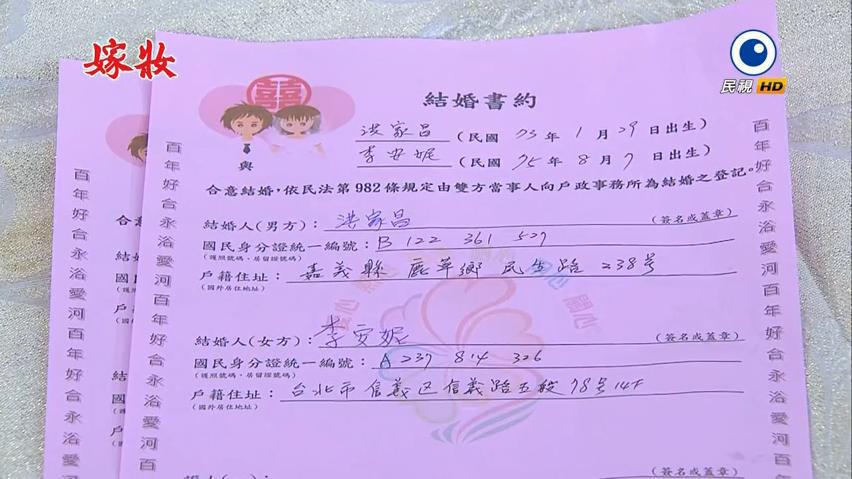 嫁妝
民視 HD
囍
結婚書約
洪家昌 (民國 73 年 1 月 29 日出生)
與
李安妮 (民國 75 年 8 月 7 日出生)
合意結婚,依民法第982條規定由雙方當事人向戶政事務所為結婚之登記。
結婚人(男方):洪家昌 (簽名或蓋章)
國民身分證統一編號:B 122 361 527
(護照號碼、居留證號碼)
戶籍住址:嘉義縣 鹿草鄉 民生路 238號
(國外居住地址)
結婚人(女方):李安妮 (簽名或蓋章)
國民身分證統一編號:A 237 814 326
(護照號碼、居留證號碼)
戶籍住址:台北市信義區信義路五段78號14F
(國外居住地址)
(簽名或蓋章)
百年好合永浴愛河百年好合永浴愛河百
百年好合永浴愛河百年好合永浴愛河百